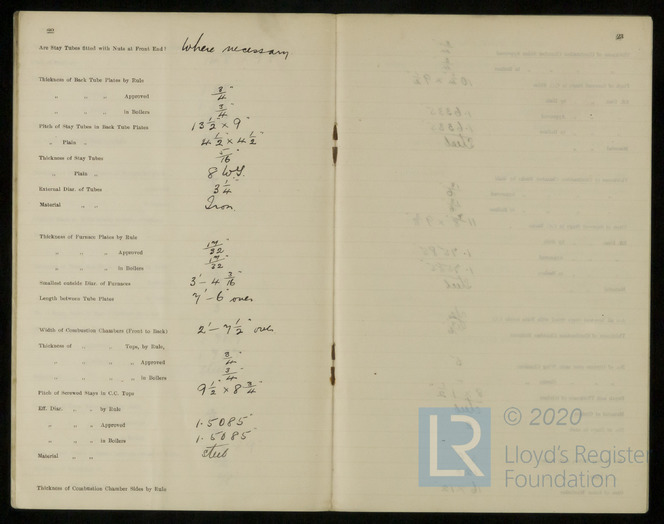 22
Are Stay Tubes fitted with Nuts at Front End? Where necessary
Thickness of Back Tube Plates by Rule
„ „ „ Approved 3/4"
„ „ „ in Boilers 3/4"
Pitch of Stay Tubes in Back Tube Plates 13 1/2" × 9"
„ Plain „ 4 1/2" × 4 1/2"
Thickness of Stay Tubes 5/16"
„ Plain „ 8 W.G.
External Diar. of Tubes 3 1/4"
Material „ „ Iron.
Thickness of Furnace Plates by Rule
„ „ „ Approved 17/32"
„ „ „ in Boilers 17/32"
Smallest outside Diar. of Furnaces 3'- 4 3/16"
Length between Tube Plates 7'- 6" over
Width of Combustion Chambers (Front to Back) 2'- 7 1/2" over
Thickness of „ „ Tops, by Rule,
„ „ „ „ Approved 3/4"
„ „ „ „ in Boilers 3/4"
Pitch of Screwed Stays in C.C. Tops 9 1/2" × 8 3/4"
Eff. Diar. „ „ by Rule
„ „ „ Approved 1.5085"
„ „ „ in Boilers 1.5085"
Material „ „ steel
Thickness of Combustion Chamber Sides by Rule
23
LR
© 2020
Lloyd's Register
Foundation